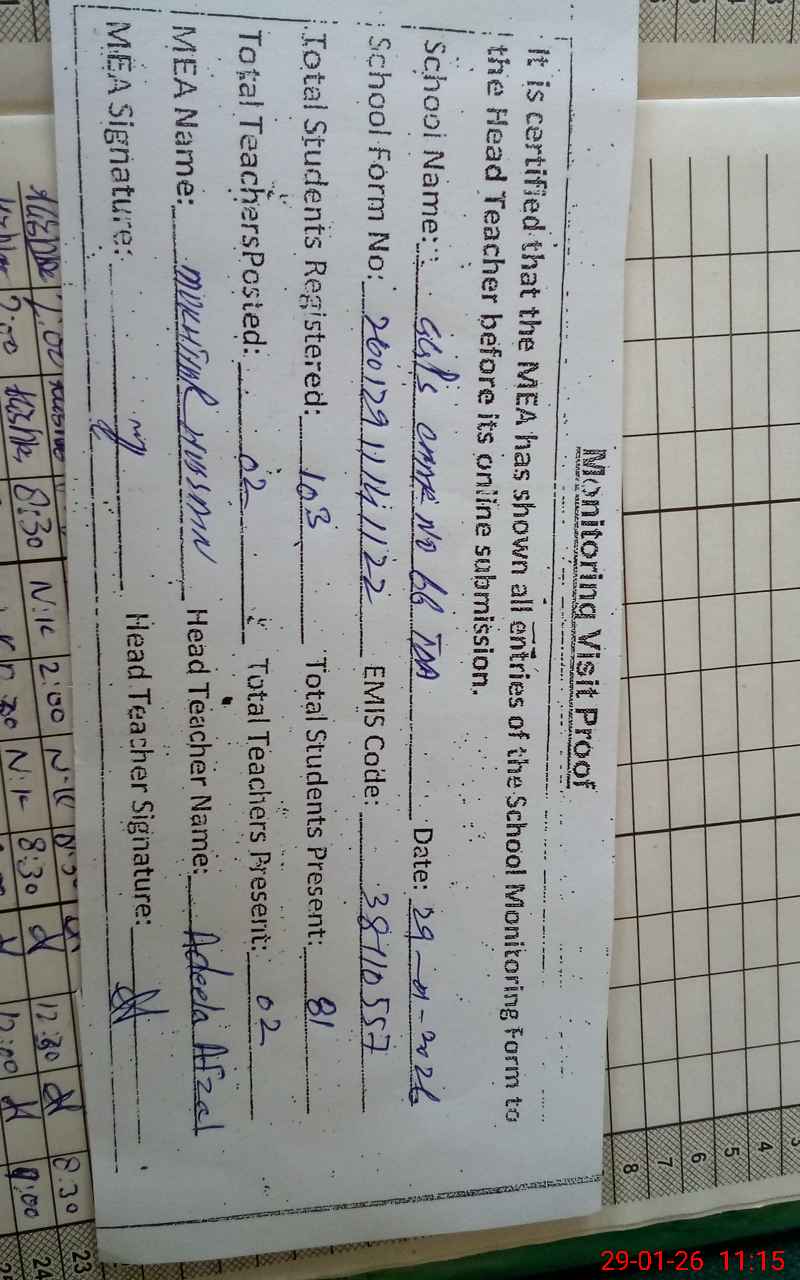 Monitoring Visit Proof
It is certified that the MEA has shown all entries of the School Monitoring Form to
the Head Teacher before its online submission.
School Name: GGPS No 66 TDA Date: 29-01-2026
School Form No: 26012911141122 EMIS Code: 38110557
Total Students Registered: 103 Total Students Present: 81
Total TeachersPosted: 02 Total Teachers Present: 02
MEA Name: MUKHTIAR HUSSAIN Head Teacher Name: Adeela Afzal
MEA Signature: Head Teacher Signature:
3
4
5
6
7
8
7:00 8:30 N:K 2:00 N:K 8:30 12:30 8:30 23
7:00 N:K 12:00 9:00 24
29-01-26 11:15